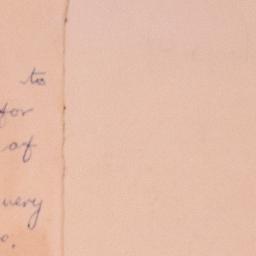 to
for
of
very